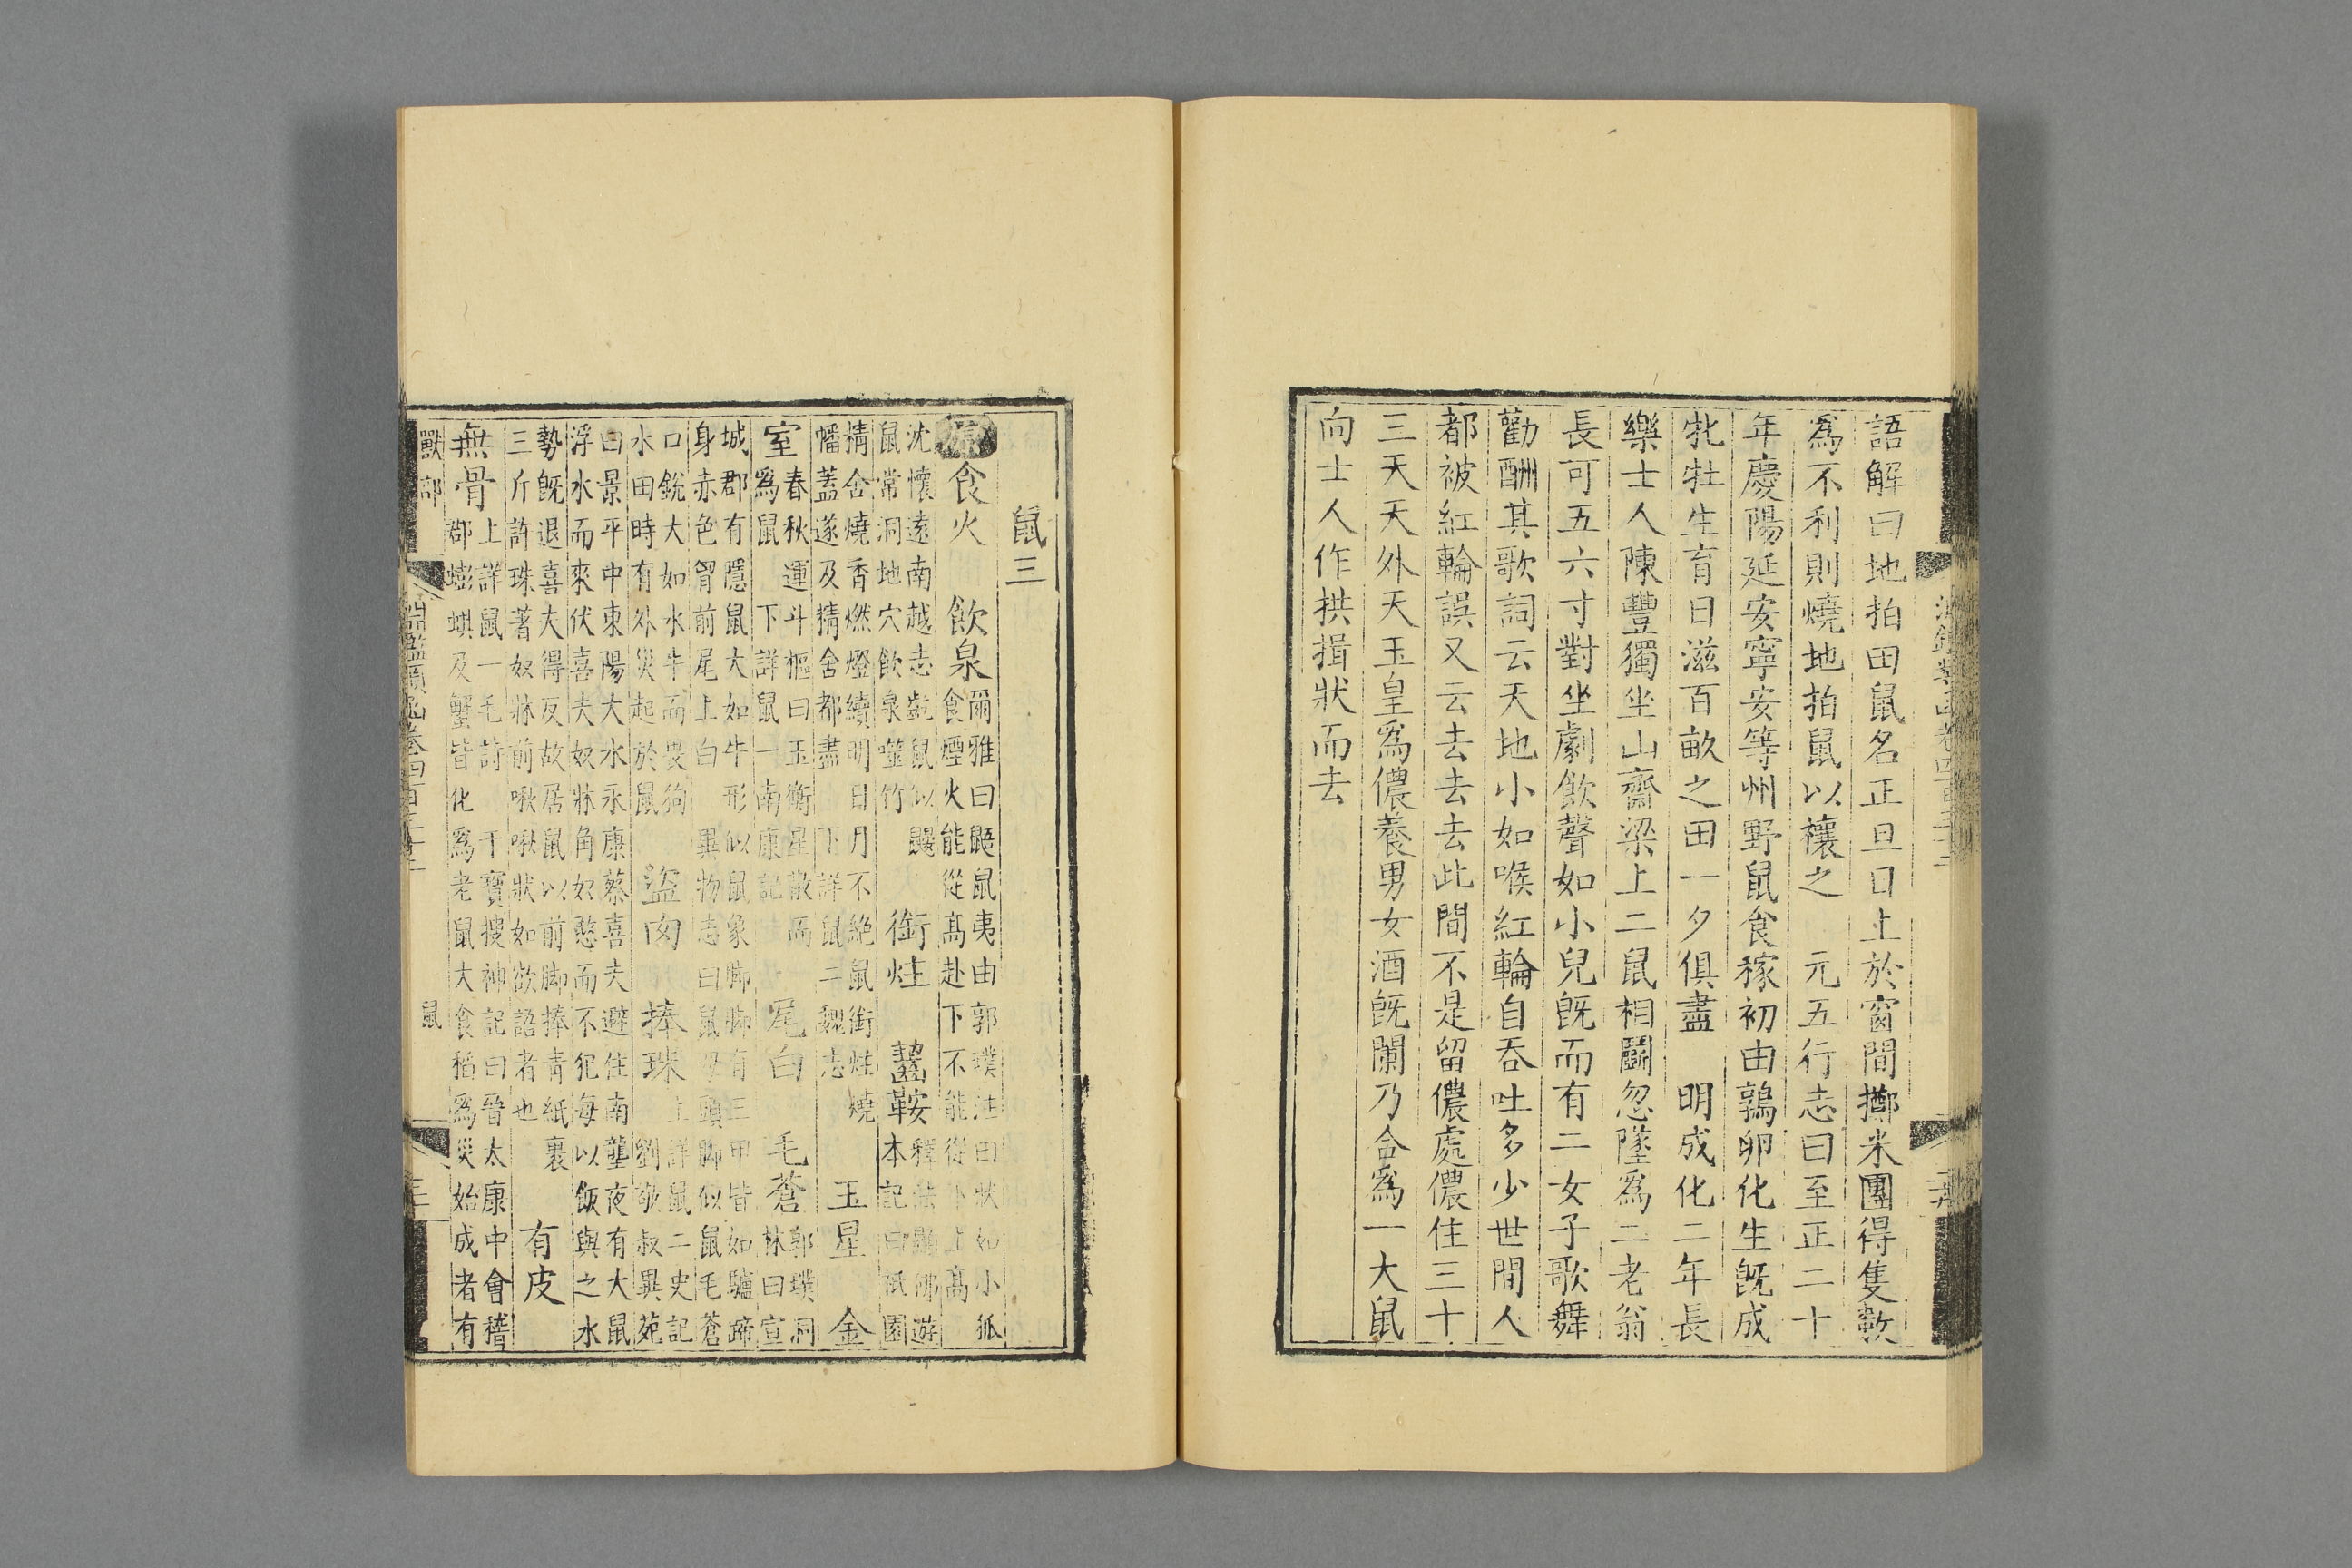 語解曰地拍田鼠名正旦日上於窗間擲米團得隻數
爲不利則燒地拍鼠以禳之　元五行志曰至正二十
年慶陽延安寧安等州野鼠食稼初由鶉卵化生旣成
牝牡生育日滋百畝之田一夕俱盡　明成化二年長
樂士人陳豐獨坐山齋梁上二鼠相鬭忽墜爲二老翁
長可五六寸對坐劇飲聲如小兒旣而有二女子歌舞
勸酬其歌詞云天地小如喉紅輪自吞吐多少世間人
都被紅輪誤又云去去去此間不是留儂處儂住三十
三天天外天玉皇爲儂養男女酒旣闌乃合爲一大鼠
向士人作拱揖狀而去
鼠三
食火　飲泉
爾雅曰鼴鼠夷由郭璞注曰狀如小狐
食煙火能從高赴下不能從下上高
沈懷遠南越志㱔鼠似鼹
鼠常洞地穴飲泉噬竹
銜炷　齧鞍
釋法顯佛遊
本記曰祇園
精舍燒香燃燈續明日月不絶鼠銜炷燒
幡蓋遂及精舍都盡　下詳鼠二魏志
玉星　金
室
春秋運斗樞曰玉衡星散而
爲鼠　下詳鼠一南康記
尾白　毛蒼
郭璞洞
林曰宣
城郡有隱鼠大如牛形似鼠象脚脚有三甲皆如驢蹄
身赤色胷前尾上白　異物志曰鼠母頭脚似鼠毛蒼
口銳大如水牛而畏狗
水田時有外災起於鼠
盜肉　捧珠
上詳鼠二史記
劉敬叔異苑
曰景平中東陽大水永康蔡喜夫避住南壟夜有大鼠
浮水而來伏喜夫奴牀角奴愍而不犯每以飯與之水
勢旣退喜夫得反故居鼠以前脚捧青紙裹
三斤許珠著奴牀前啾啾狀如欲語者也
有皮
無骨
上詳鼠一毛詩　干寶搜神記曰晉太康中會稽
郡蟛蜞及蟹皆化爲老鼠大食稻爲災始成者有
獸部
鼠
淵鑑類函卷四百三十二